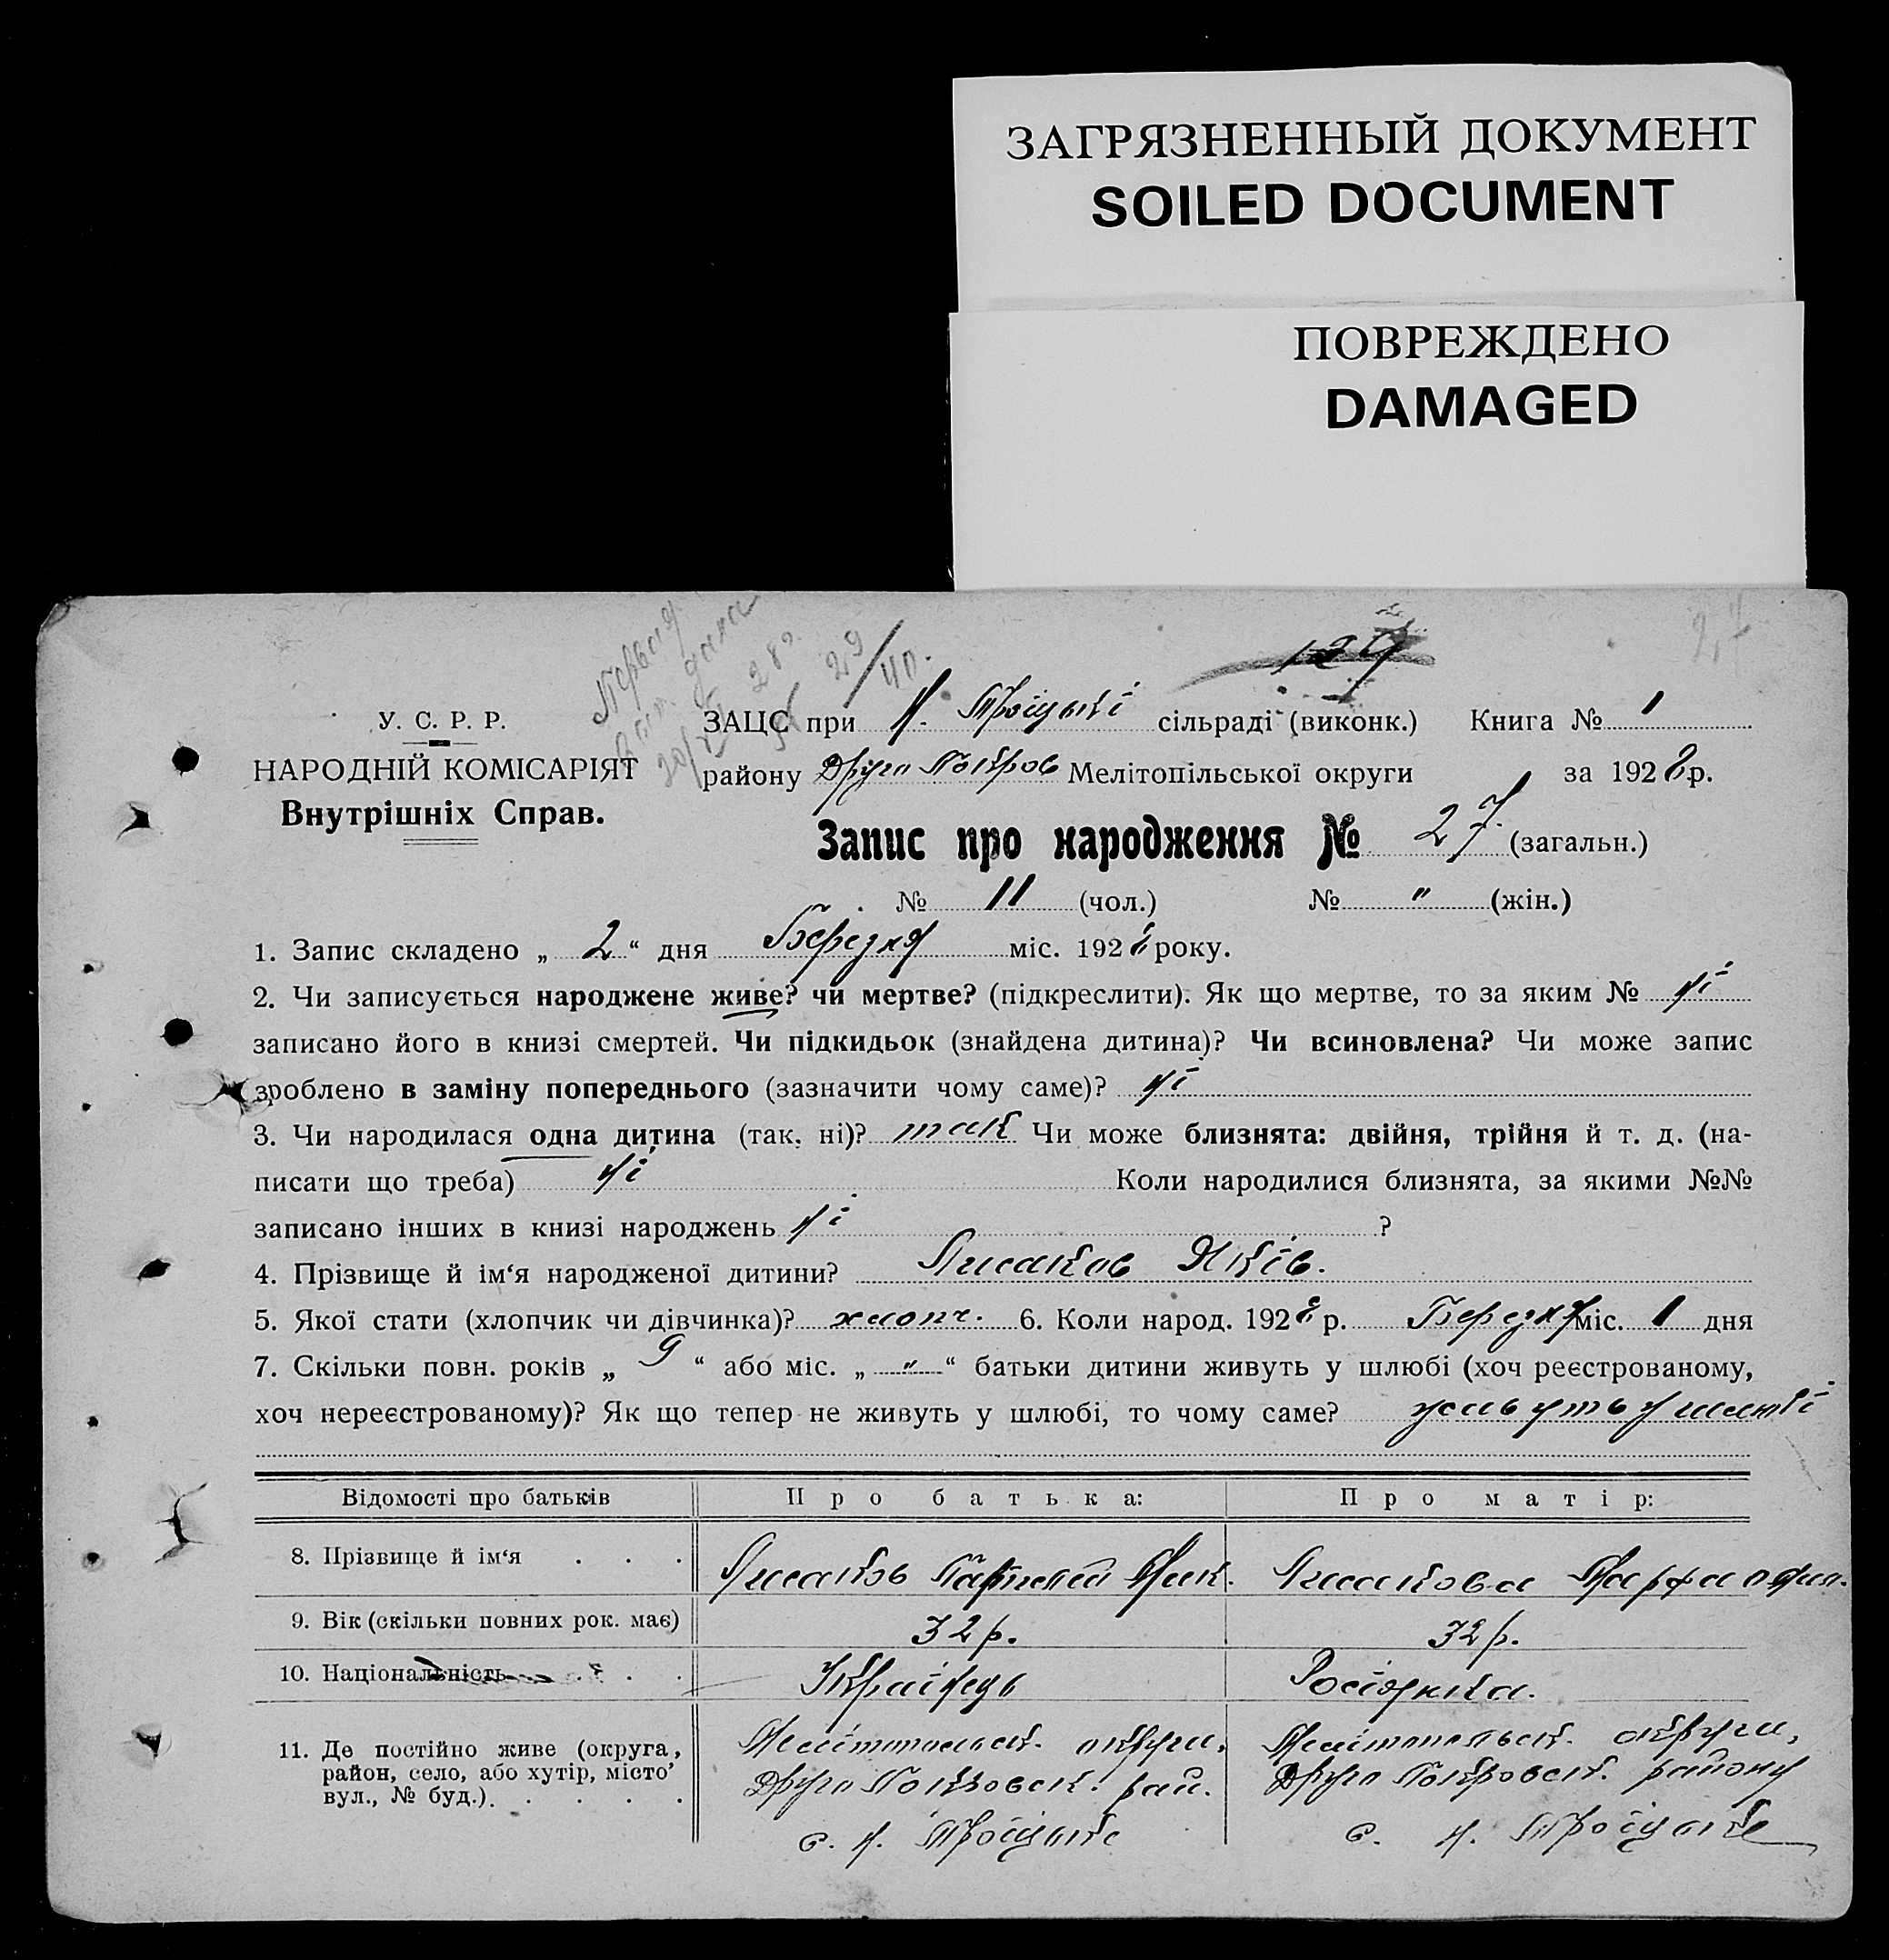 ЗАГРЯЗНЕННЫЙ ДОКУМЕНТ
SOILED DOCUMENT
ПОВРЕЖДЕНО
DAMAGED
27
129
29/40.
У. С. Р. Р.
НАРОДНІЙ КОМІСАРІЯТ
Внутрішніх Справ.
ЗАЦС при Н. Троїцькі сільраді (виконк.) Книга № 1
району Друго Покров Мелітопільської округи за 1928 р.
Запис про народження № 27 (загальн.)
№ 11 (чол.) № " (жін.)
1. Запис складено „ 2 “ дня Березня міс. 1928 року.
2. Чи записується народжене живе? чи мертве? (підкреслити). Як що мертве, то за яким № ні
записано його в книзі смертей. Чи підкидьок (знайдена дитина)? Чи всиновлена? Чи може запис
зроблено в заміну попереднього (зазначити чому саме)? ні
3. Чи народилася одна дитина (так, ні)? так Чи може близнята: двійня, трійня й т. д. (на-
писати що треба) ні Коли народилися близнята, за якими №№
записано інших в книзі народжень ні ?
4. Прізвище й ім‘я народженої дитини? Лисаков Яків.
5. Якої стати (хлопчик чи дівчинка)? хлопч. 6. Коли народ. 1928 р. Березня міс. 1 дня
7. Скільки повн. років „ 9 “ або міс. „ " “ батьки дитини живуть у шлюбі (хоч реєстрованому,
хоч нереєстрованому)? Як що тепер не живуть у шлюбі, то чому саме? живуть у шлюбі
Відомості про батьків Про батька: Про матір:
8. Прізвище й ім‘я . . . Лисаков Лисакова Марфа
9. Вік (скільки повних рок. має) 32 р. 32 р.
10. Національність . . . Українець Росіянка.
11. Де постійно живе (округа, Мелітопольськ. округи, Мелітопольськ. округи,
район, село, або хутір, місто, Друго Покровськ. рай. Друго Покровськ. району
вул., № буд.). . . . . с. Н. Троїцьке с. Н. Троїцьке